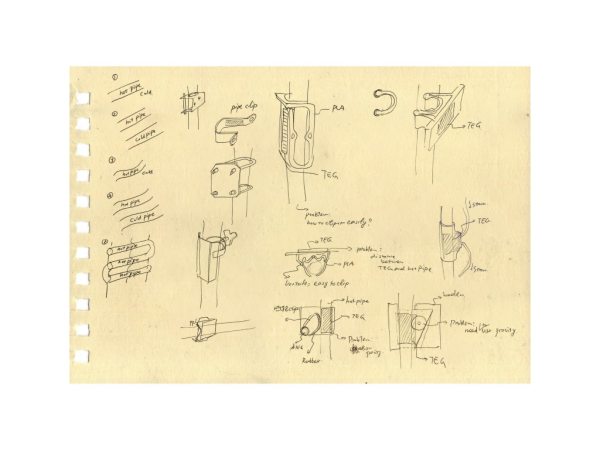 ①
hot pipe
Cold
②
hot pipe
Cold pipe
③
hot pipe
Cold
④
hot pipe
Cold pipe
hot pipe
hot pipe
hot pipe
pipe clip
PLA
TEG
problem
how to clip on easily?
TEG
TEG
problem:
distance
between
TEG and hot pipe
PLA
easy to clip
TEG
hot pipe
TEG
Problem
Rubber
wooden
problem:
need use gravity
TEG